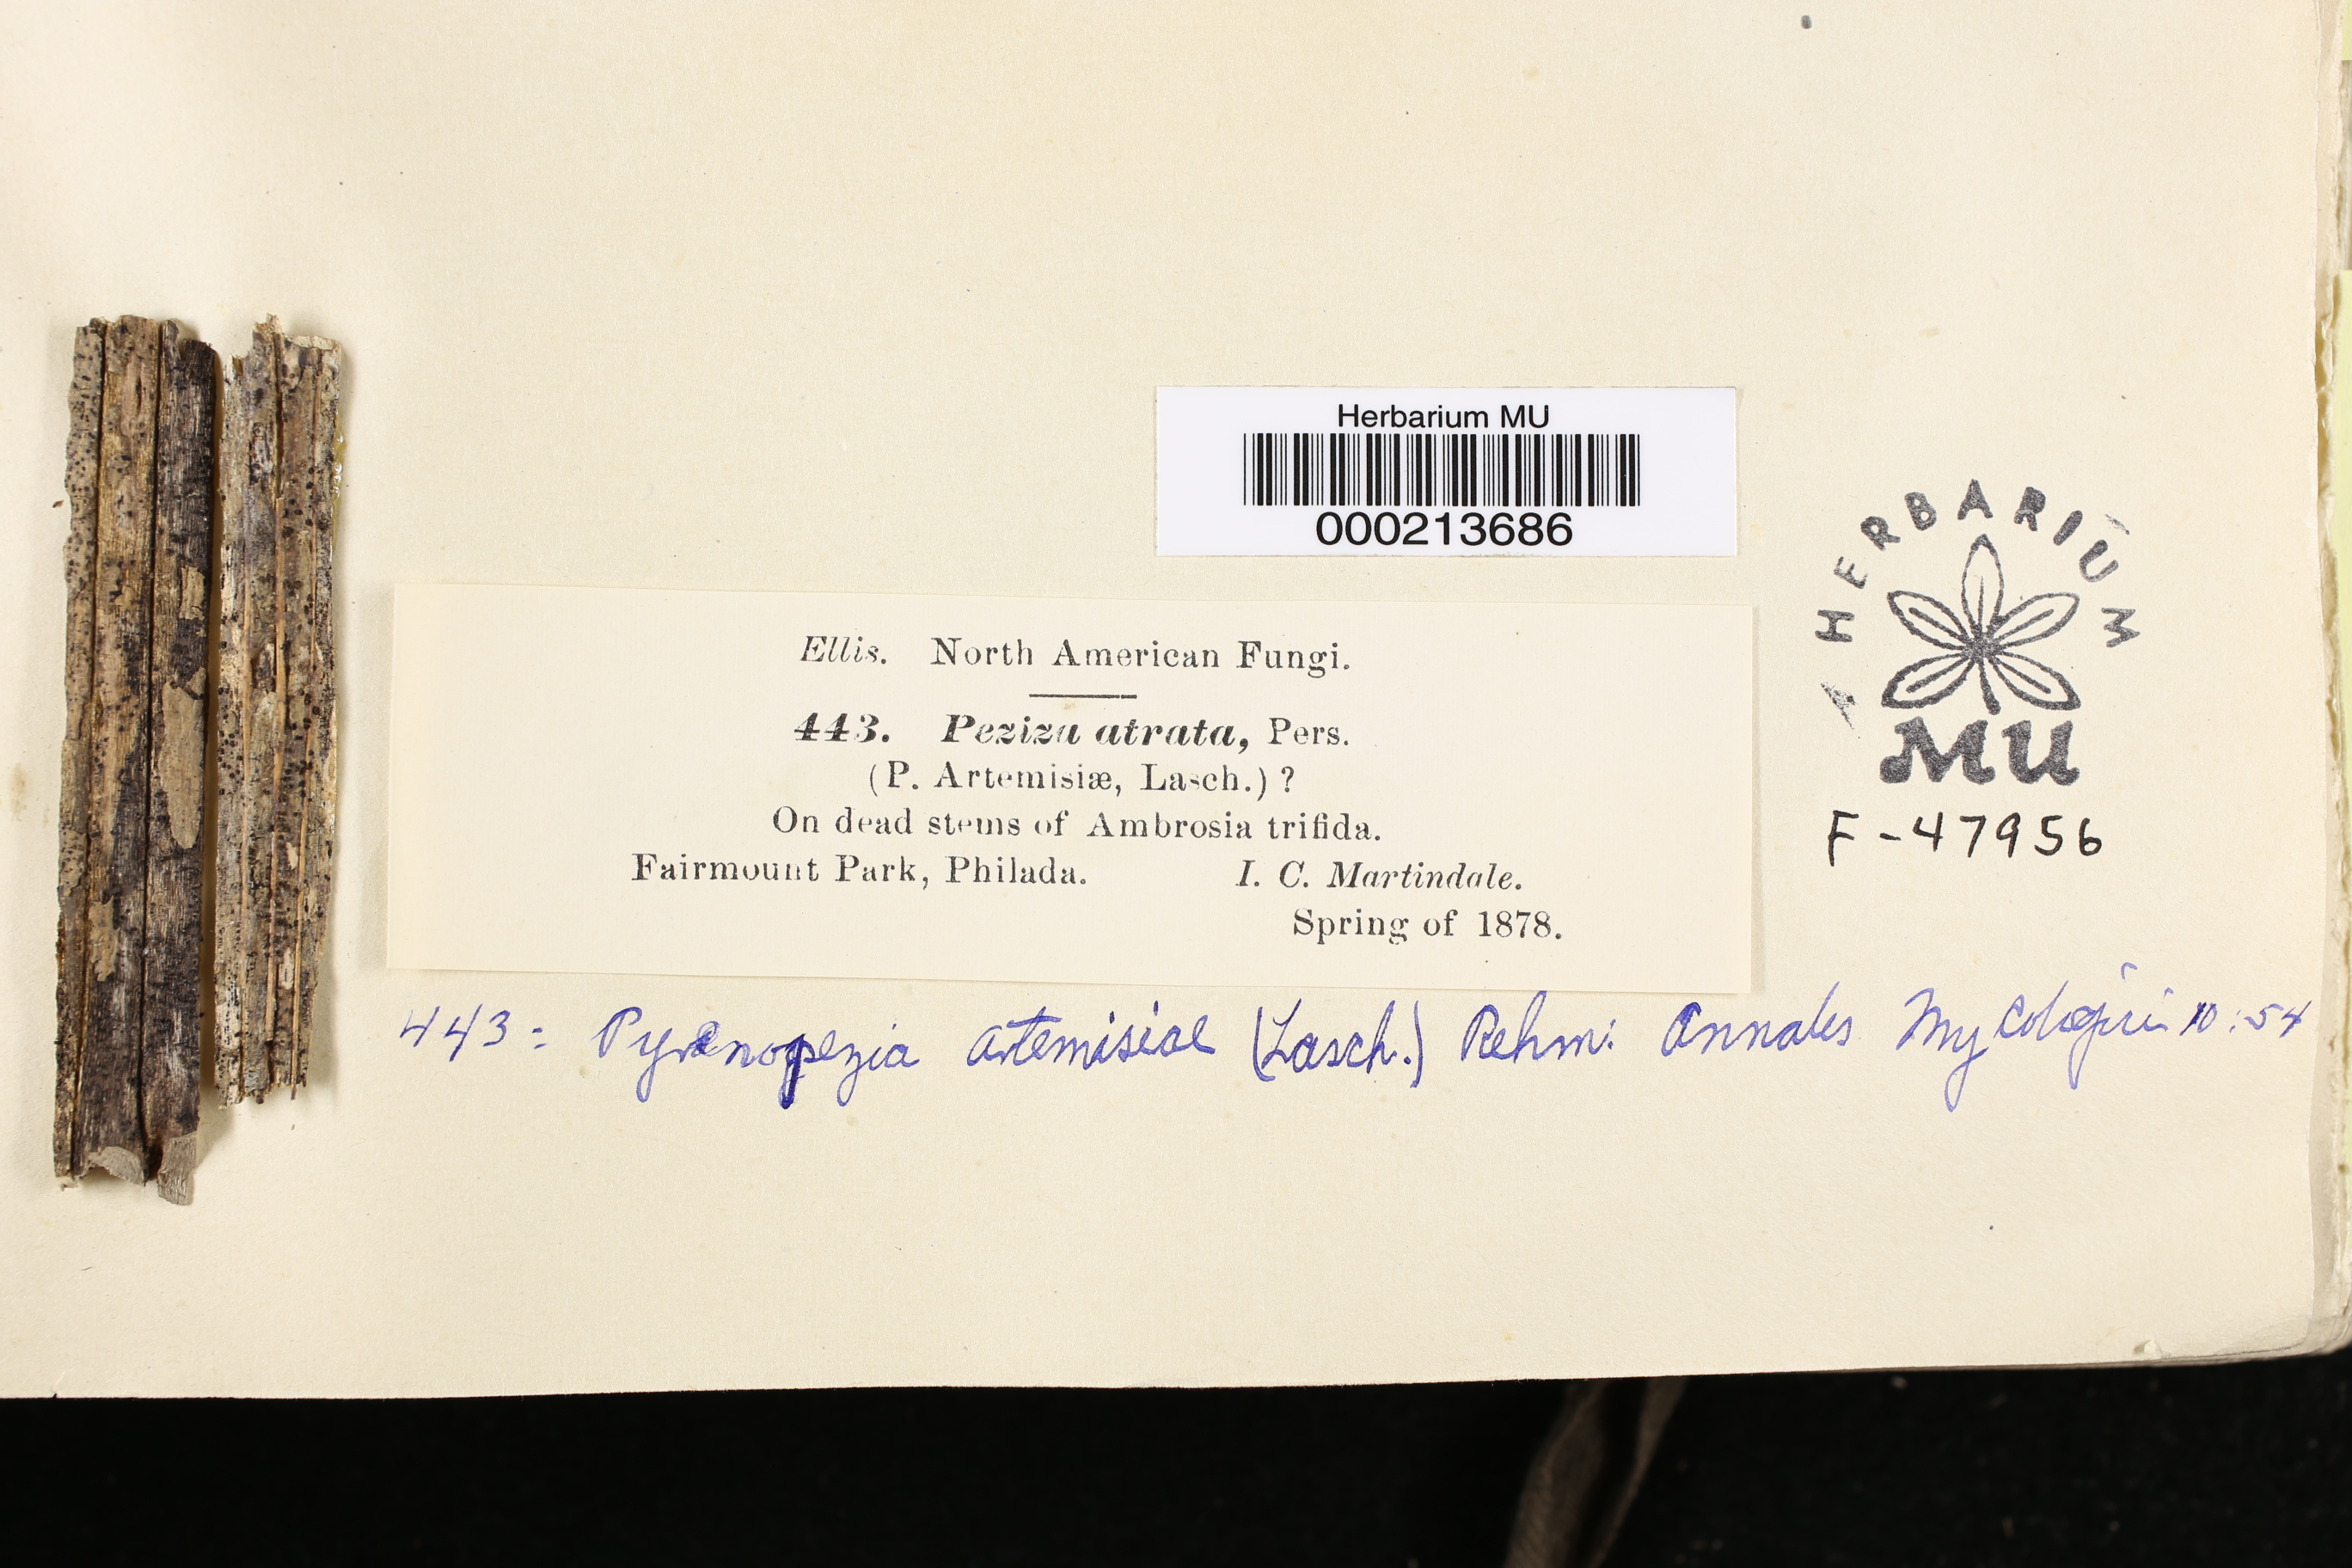 Herbarium MU
000213686
A HERBARIUM
MU
F-47956
Ellis. North American Fungi.
443. Peziza atrata, Pers.
(P. Artemisiæ, Lasch.) ?
On dead stems of Ambrosia trifida.
Fairmount Park, Philada. I. C. Martindale.
Spring of 1878.
443: Pyrenopezia artemisiae (Lasch.) Rehm: Annales Mycologici 10:54